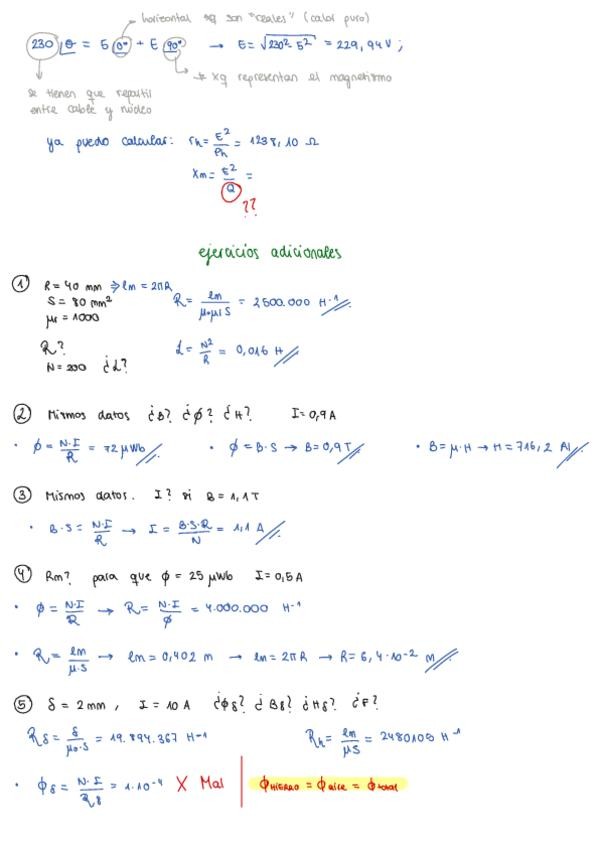 horizontal xq son "reales" (calor puro)
230 θ = 5 0° + E 90° → E = √230² - 5² = 229,94 V ;
→ xq representan el magnetismo
se tienen que repartir
entre cable y núcleo
ya puedo calcular: rh = E²/Ph = 1238,10 Ω
Xm = E²/Q =
??
ejercicios adicionales
① R = 40 mm ⇒ lm = 2πR
S = 80 mm²
μr = 1000
R = lm/μ0·μr·S = 2500.000 H⁻¹
R?
N = 200 ¿L?
L = N²/R = 0,016 H
② Mismos datos ¿B? ¿ϕ? ¿H? I = 0,9 A
• ϕ = N·I/R = 72 μWb • ϕ = B·S → B = 0,9 T • B = μ·H → H = 716,2
③ Mismos datos. I? si B = 1,1 T
• B·S = N·I/R → I = B·S·R/N = 1,1 A
④ Rm? para que ϕ = 25 μWb I = 0,5 A
• ϕ = N·I/R → R = N·I/ϕ = 4.000.000 H⁻¹
• R = lm/μ·S → lm = 0,402 m → lm = 2πR → R = 6,4·10⁻² m
⑤ δ = 2 mm , I = 10 A ¿ϕδ? ¿Bδ? ¿Hδ? ¿F?
Rδ = δ/μ0·S = 19.894.367 H⁻¹ Rh = lm/μS = 2480105 H⁻¹
• ϕδ = N·I/Rδ = 1·10⁻⁴ X Mal ϕHIERRO = ϕaire = ϕtotal